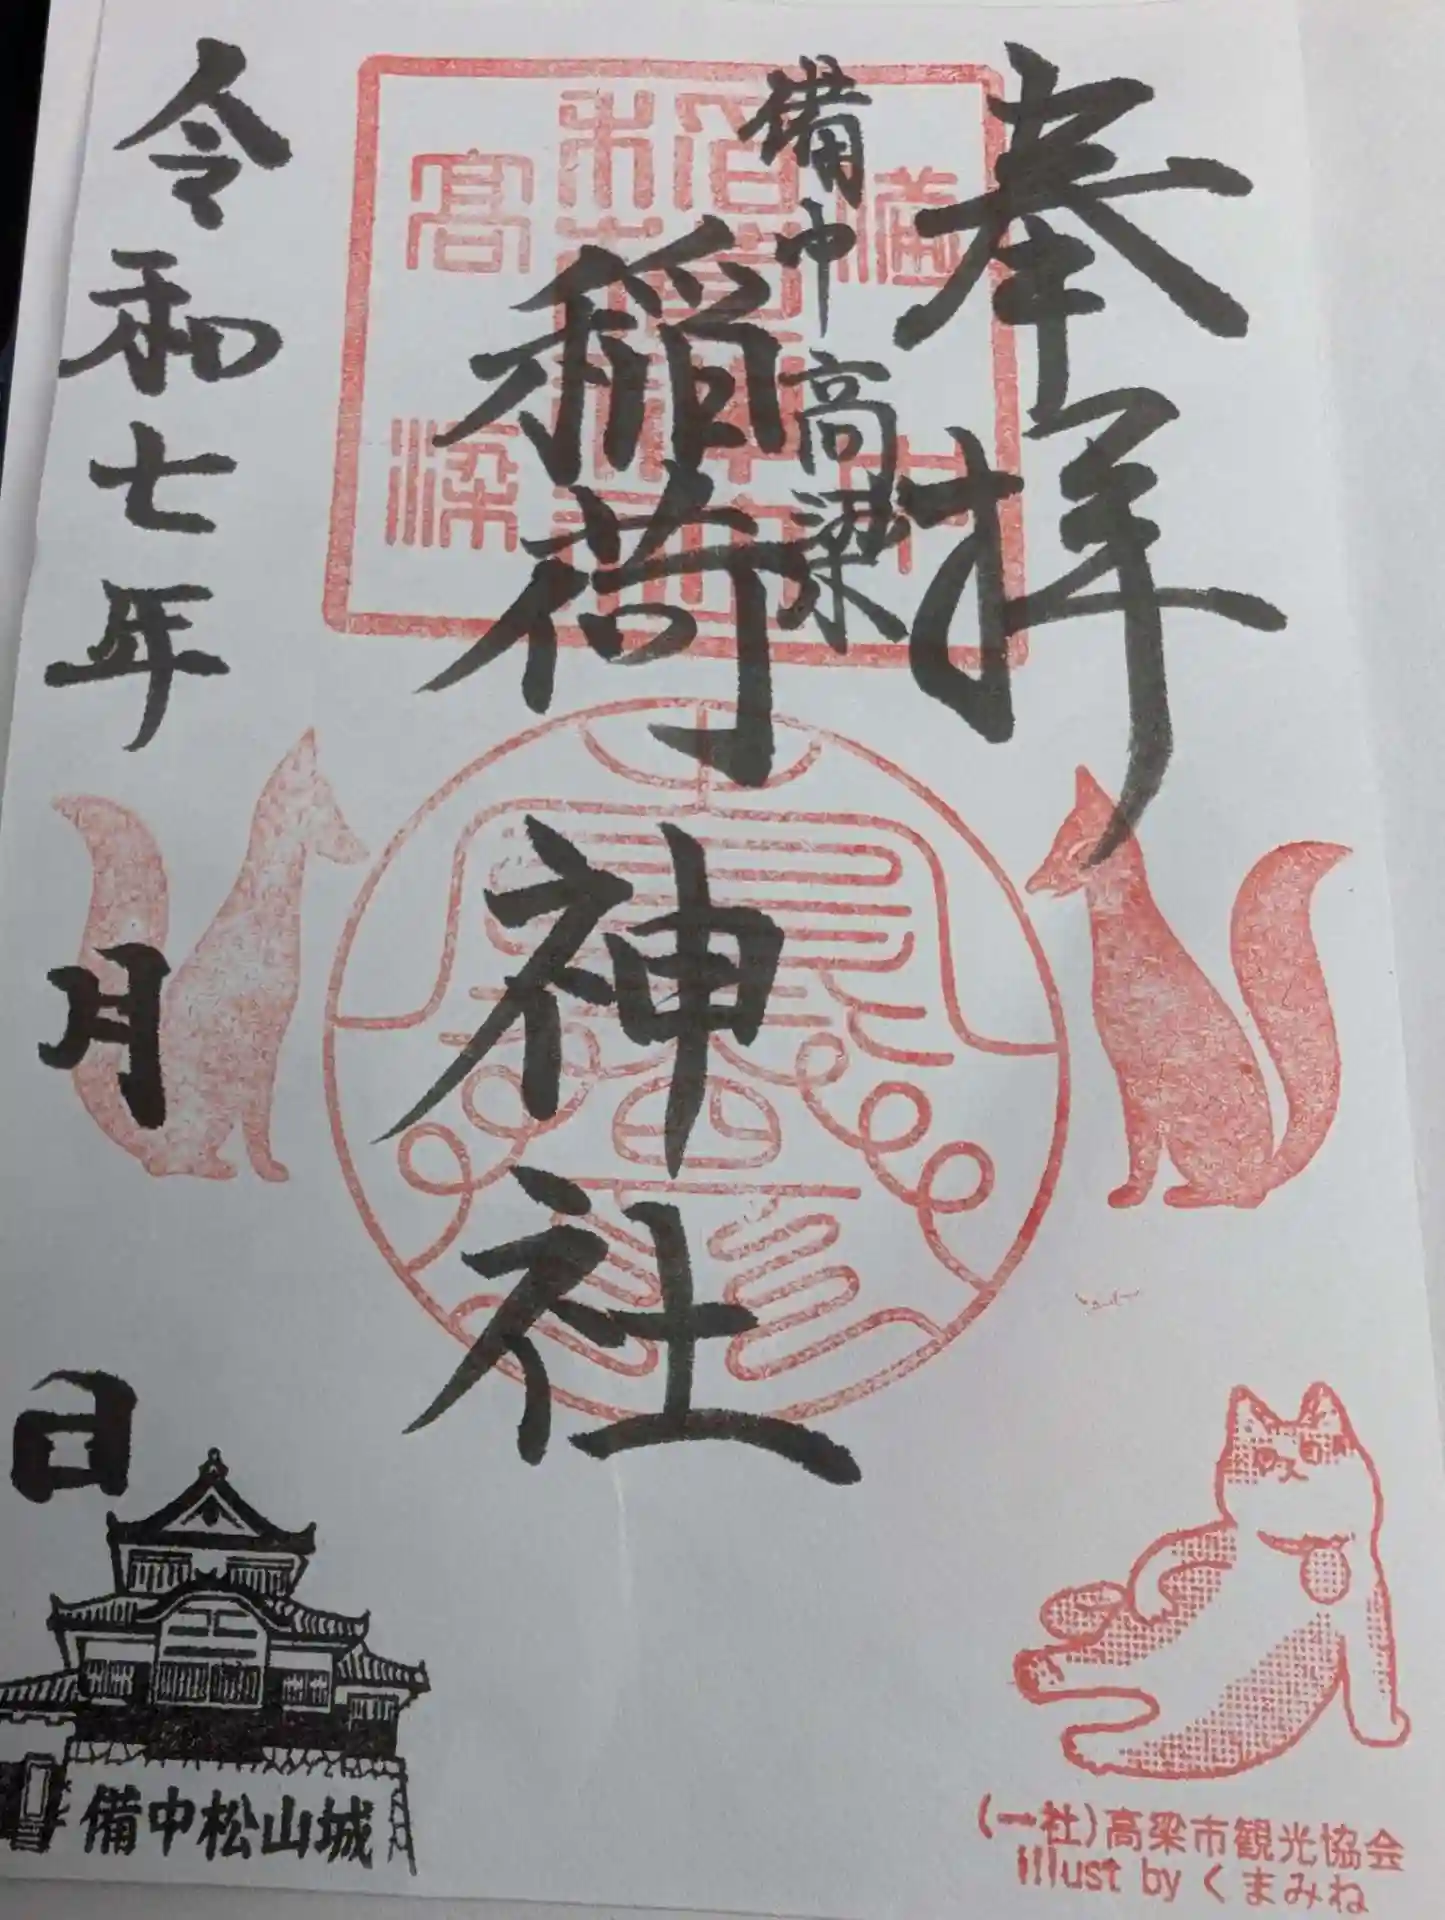 奉拝
備中高梁
稲荷神社
令和七年 月 日
備中
高梁
備中松山城
(一社)高梁市観光協会
illust by くまみね